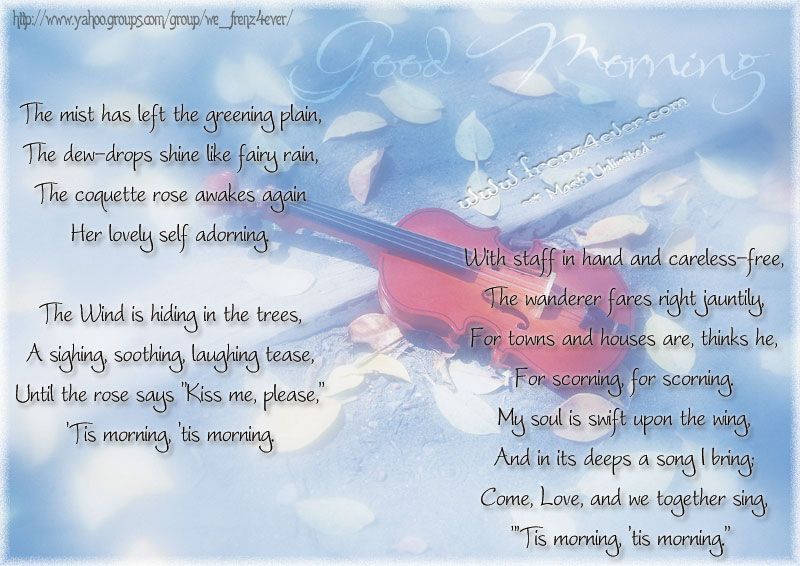 http://www.yahoogroups.com/group/we_frenz4ever/
Good Morning
www.frenz4ever.com
~* Masti Unlimited *~
The mist has left the greening plain,
The dew-drops shine like fairy rain,
The coquette rose awakes again
Her lovely self adorning.
The Wind is hiding in the trees,
A sighing, soothing, laughing tease,
Until the rose says "Kiss me, please,"
'Tis morning, 'tis morning.
With staff in hand and careless-free,
The wanderer fares right jauntily,
For towns and houses are, thinks he,
For scorning, for scorning.
My soul is swift upon the wing,
And in its deeps a song I bring;
Come, Love, and we together sing,
"'Tis morning, 'tis morning."